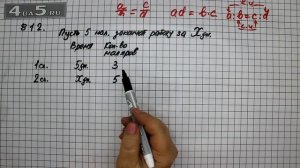 4OU5.RU
a/n = c/d ad = b·c a:b=c:d
812. Пусть 5 мал. закончат работу за X дн.
Время Кол-во
маляров
1сл. 5дн. 3
2сл. Xдн. 5